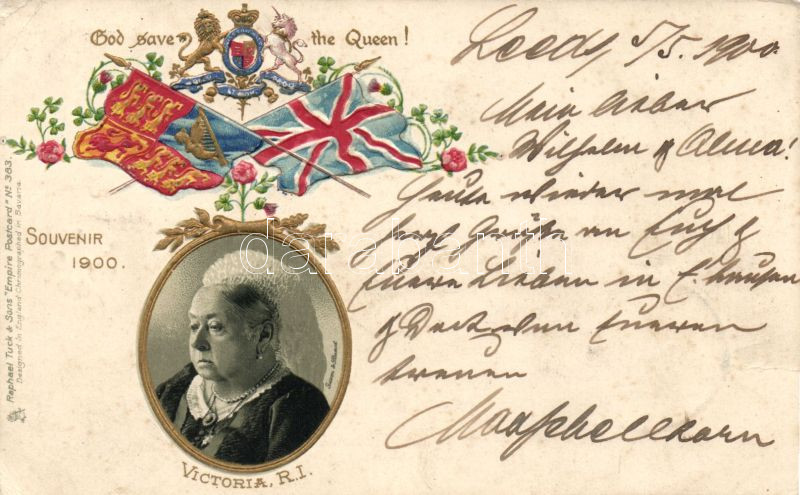 God save the Queen!
SOUVENIR
1900.
VICTORIA, R.I.
Raphael Tuck & Sons "Empire Postcard" No. 383.
Designed in England Chromographed in Bavaria.
Leeds 5/5. 1900.
Mein lieber
Wilhelm & Alma!
Heute wieder mal
herzl. Grüße an Euch &
Euere Lieben in
& von Eueren
treuen